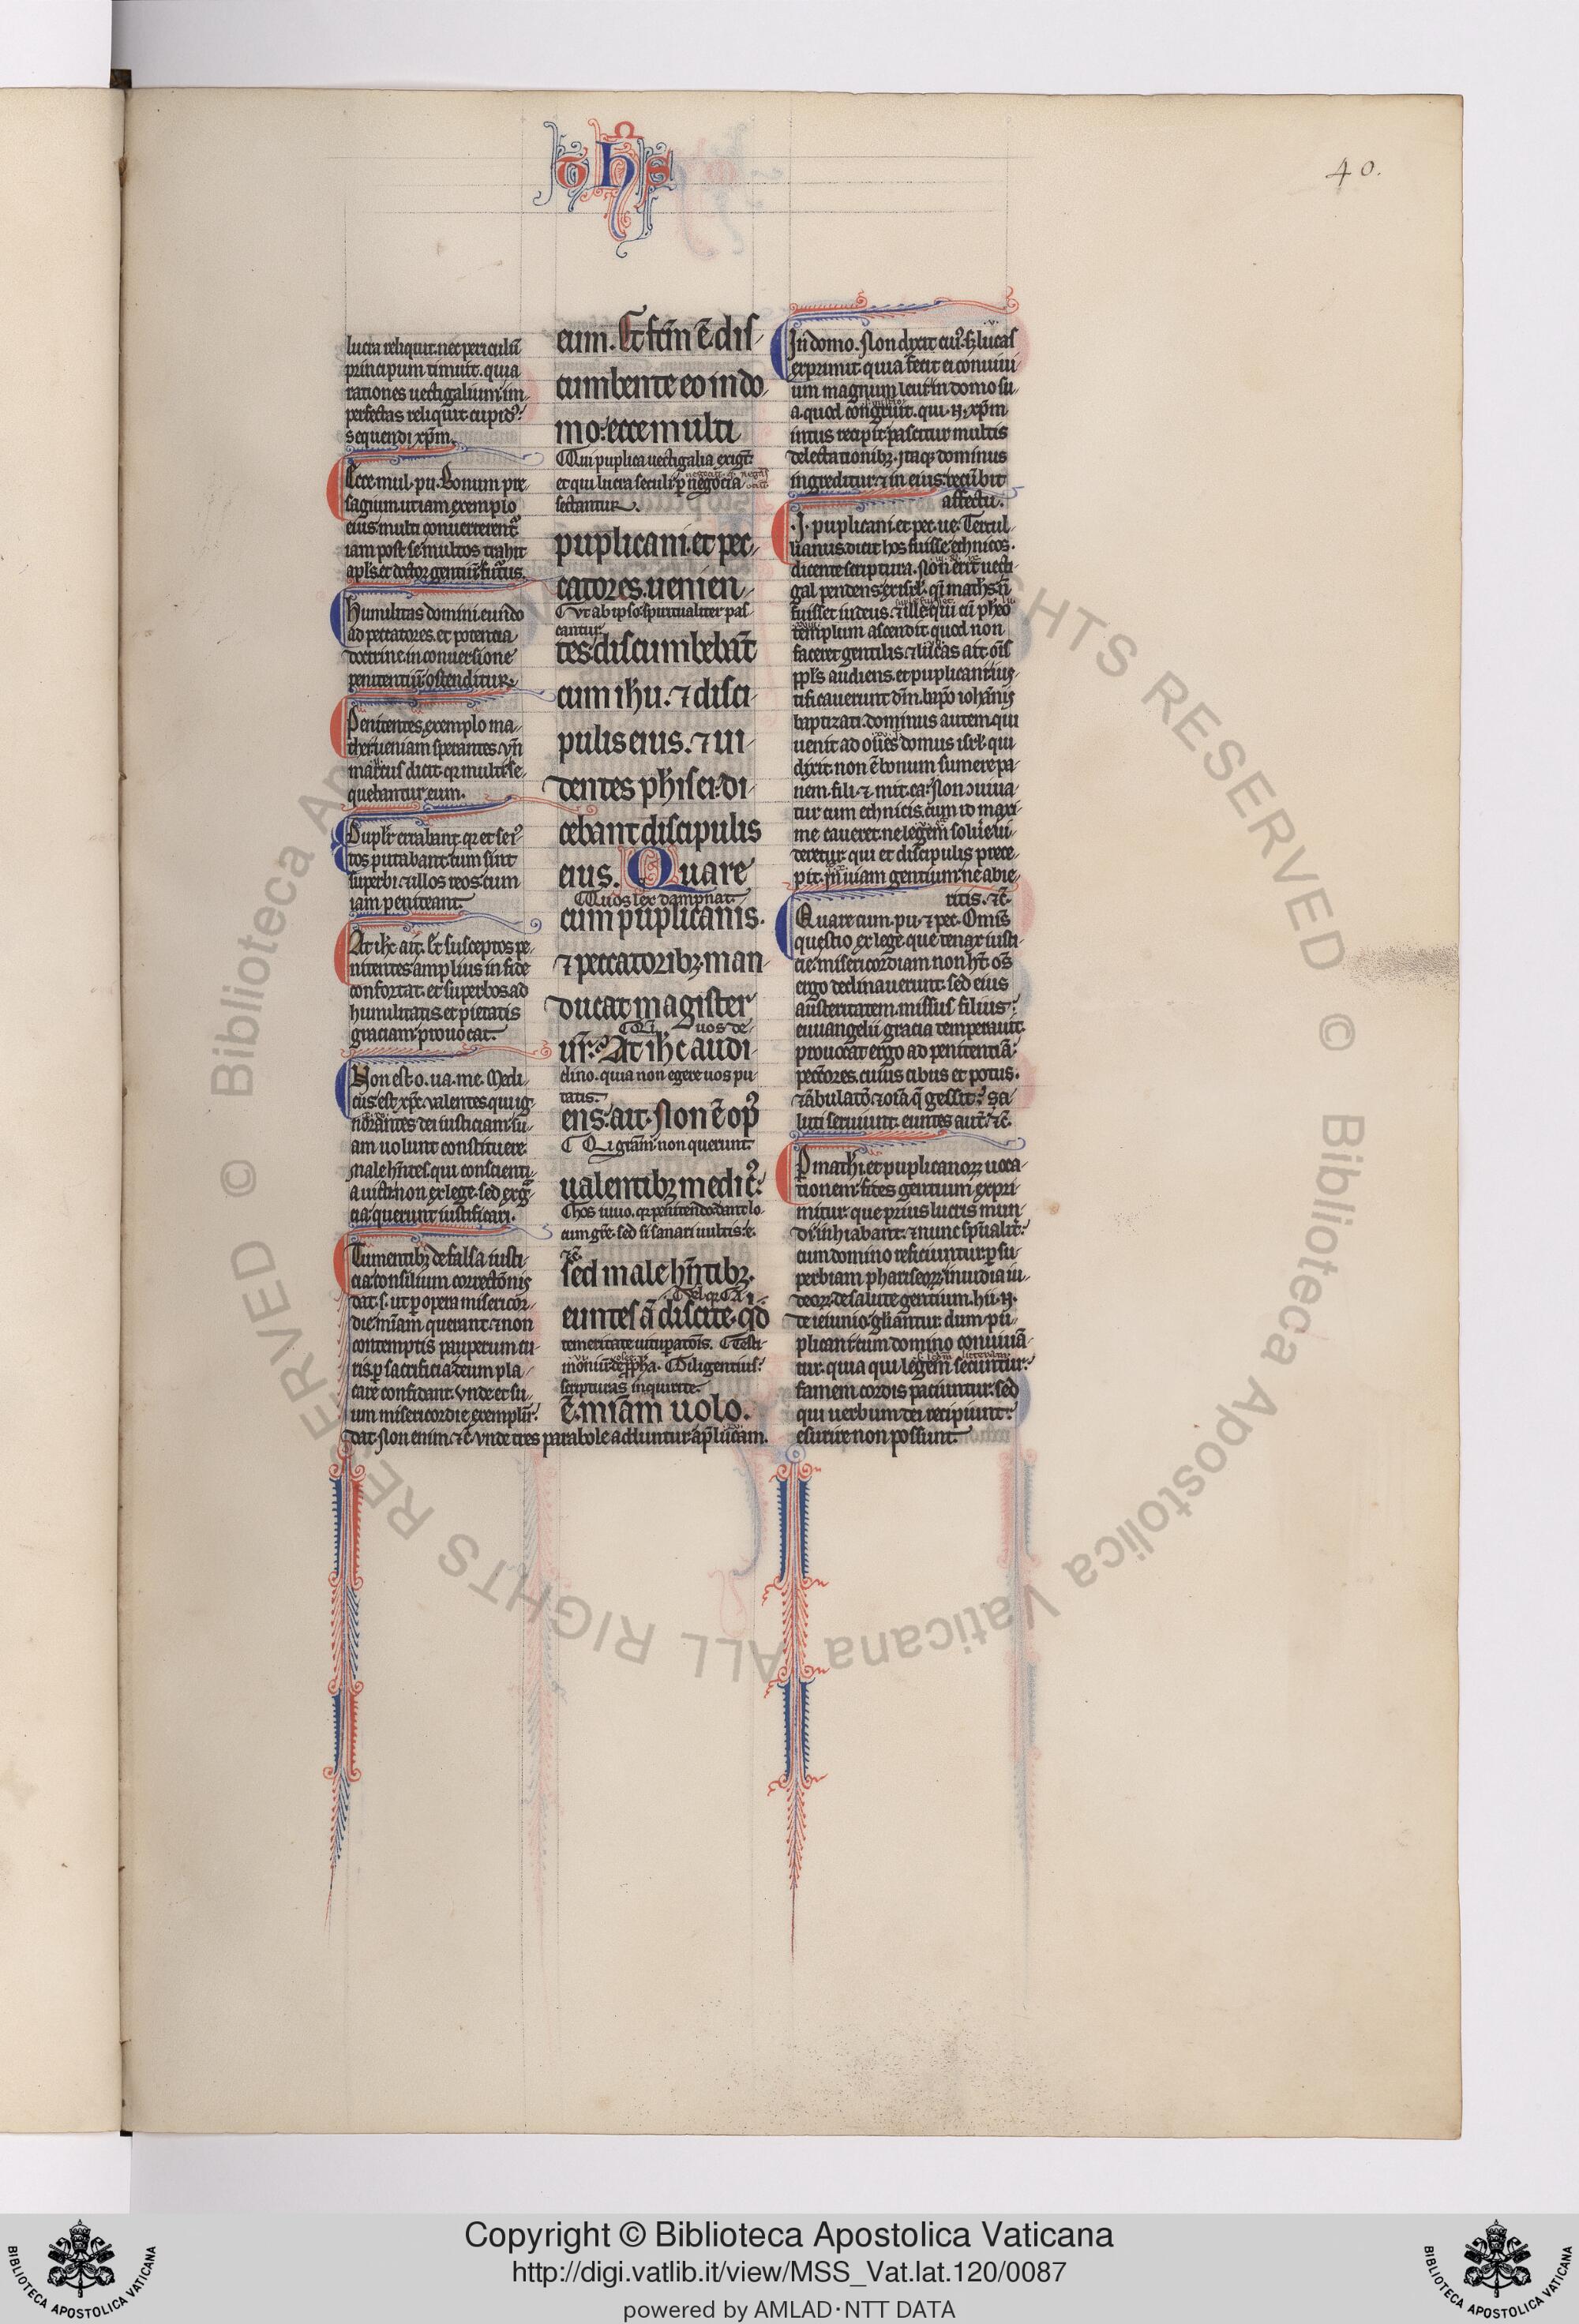 ths
40.
lucra reliquit. nec periculū
principum timuit. quia
rationes uectigalium im-
perfectas reliquit cupid⁹
sequendi xp̄m.
Ecce mul. pu. Bonum pre
sagium ut iam exemplo
eius multi conuerterent᷑
iam post se multos trahit
apl's et doctor gentiū futurus.
Humilitas domini eundo
ad peccatores. et potencia
doctrine in conuersione
penitentiū ostenditur.
Penitentes exemplo ma-
thei ueniam sperantes. vn̄
marcus dicit. qr multi se-
quebantur eum.
Duplr̄ errabant. qr et se i⁹
tos putabant. cum sint
superbi. ⁊ illos reos. cum
iam peniteant.
At ihc̄ ait. Et susceptos pe-
nitentes amplius in fide
confortat. et superbos ad
humilitatis et pietatis
graciam prouocat.
Non est o. ua. me. Medi-
cus est xp̄c. ualentes. qui ig-
norantes dei iusticiam su-
am uolunt constituere.
male hn̄tes. qui conscienti-
a uicti non ex lege. sed ex gr̄a-
cia querunt iustificari.
Tumentibꝫ de falsa iusti-
cia consilium correctōnis
dat. s. ut p̱ opera misericor-
die mīam querant. ⁊ non
contemptis pauperum cu-
ris p̱ sacrificia deum pla-
care confidant. vnde et su-
um misericordie exemplū
dat. Non enim. ⁊c̄. vnde tres parabole adduntur ap̄ lucam.
eum. Et fc̄m ē. dis-
cumbente eo in do
mo: ecce multi
Qui puplica uectigalia exigūt
et qui lucra seculi p̱ negocia
sectantur.
puplicani. et pec-
catores. uenien-
Vt ab ipso spiritualiter pas
cantur.
tes discumbebāt
cum ihu. ⁊ disci-
pulis eius. ⁊ ui-
dentes phisei: di-
cebant discipulis
eius. Quare
Quos lex dampnat.
cum puplicanis.
⁊ peccatoribꝫ. man-
ducat magister
uos de-
ur̄? At ihc̄ audi-
clino. quia non egere uos pu-
tatis.
ens: ait. Non ē op⁹
Qi grām non querunt
ualentibꝫ medic⁹:
hos iuuo. qr penitendo dant lo
cum grē. sed si sanari uultis. e.
⁊c̄.
sed male hn̄tibꝫ.
euntes ā discite. qd̄
temeritate uitupatōis. Testi-
moniū de ppha. Diligentius
scripturas inquirite.
ē. mīam uolo.
In domo. Non dixit cui⁹. sꝫ lucas
exprimit. quia fecit ei conuiui
um magnum leui in domo su-
a. quod congruit. qui .n. xp̄m
intus recipit pascitur multis
delectationibꝫ. itaqꝫ dominus
ingreditur ⁊ in eius recūbit
affectu.
.J. puplicani. et pec. ue. Tertul-
lianus dicit hos fuisse ethnicos.
dicente scriptura. Non erit uecti-
gal pendens ex isrl. q̄i math's n̄
fuisset iudeus. ⁊ ille qui cū phēo
templum ascendit quod non
faceret gentilis. ⁊ lucas ait. ōīs
ppl's audiens. et puplicani ius-
tificauerunt dm̄. bapō iohānis
baptizati. dominus autem qui
uenit ad oues domus isrl. qui
dixit. non ē bonum sumere pa-
nem fili. ⁊ mit. ca. Non ɔuiua-
tur cum ethnicis. cum id maxi-
me caueret. ne legem soluere ui-
deretur. qui et discipulis prece-
pit. In uiam gentium ne abie-
ritis. ⁊c̄.
Quare cum. pu. ⁊ pec. Omīs
questio ex lege. que tenax iusti-
cie. misericordiam non ht̄. oēs
ergo declinauerunt. sed eius
austeritatem. missus filius
euuangelii gracia temperauit.
prouocat ergo ad penitentiā
pecc̄ores. cuius cibus et potus.
⁊ ābulatō. ⁊ oīa q̄ gessit sa-
luti seruiunt. euntes aut̄. ⁊c̄.
P mathī. et puplicanoꝝ uoca-
tionem. fides gentium expri-
mitur. que prius lucris mun-
di inhiabant. ⁊ nunc sp̄ualit̄
cum domino reficiuntur. p̱ su-
perbiam phariseoꝝ. inuidia iu-
deoꝝ. de salute gentium. hii .n.
de ieiunio gl̄iantur. dum pu-
plicani cum domino conuiuā-
tur. quia qui legem secuntur
famem cordis paciuntur. sed
qui uerbum dei recipiunt
esurire non possunt.
Copyright © Biblioteca Apostolica Vaticana
http://digi.vatlib.it/view/MSS_Vat.lat.120/0087
powered by AMLAD·NTT DATA
BIBLIOTECA APOSTOLICA VATICANA
BIBLIOTECA APOSTOLICA VATICANA
© Biblioteca Apostolica Vaticana ALL RIGHTS RESERVED © Biblioteca Apostolica Vaticana ALL RIGHTS RESERVED